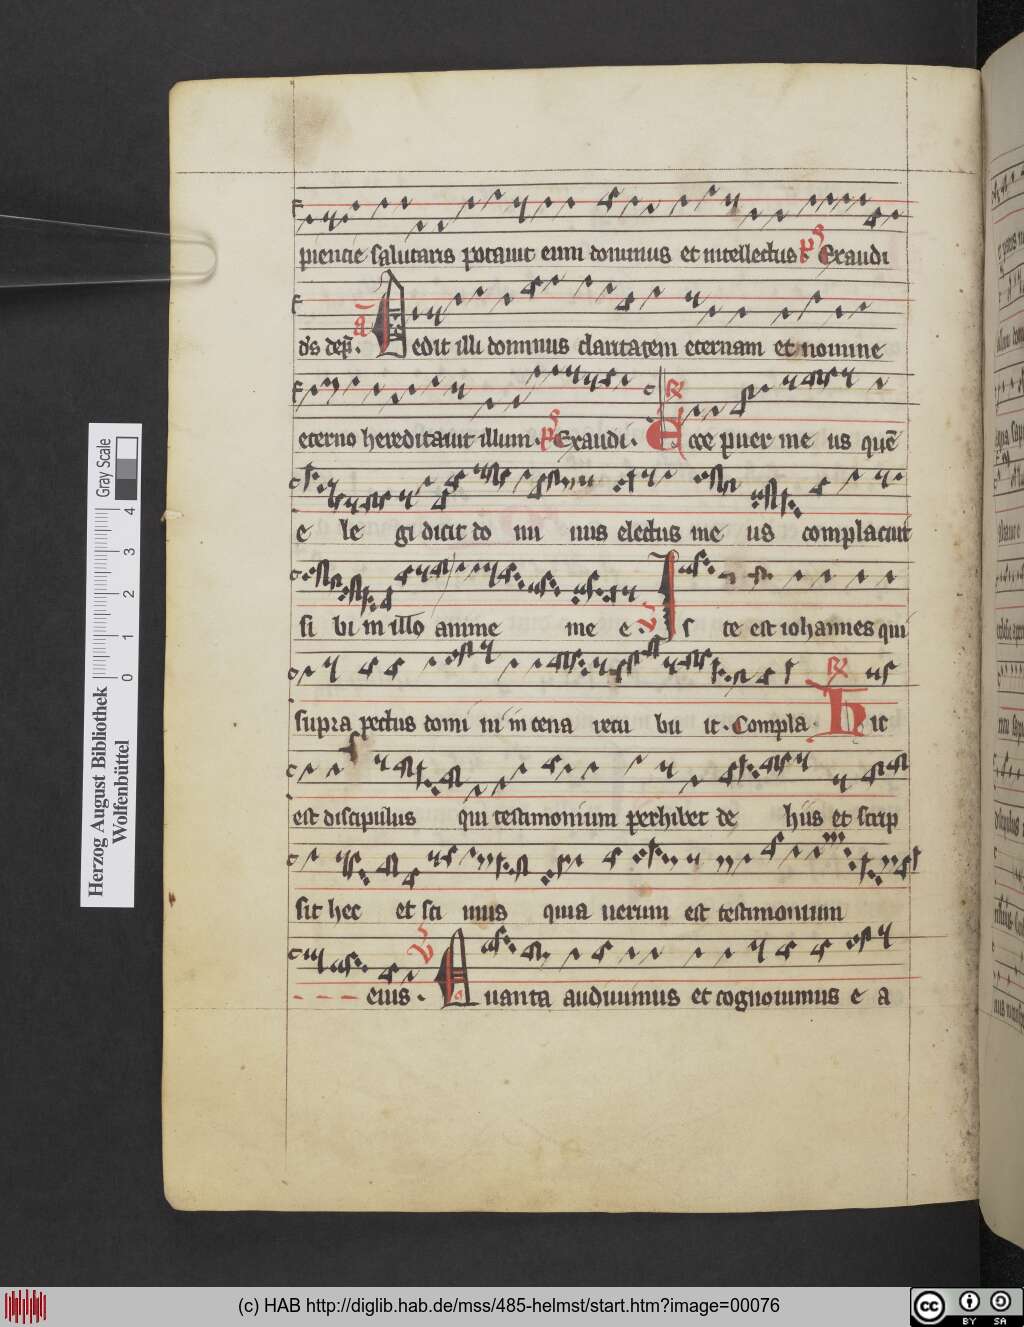 piencie salutaris potauit eum dominus et intellectus. ps Exaudi
ds dep̄. ā Dedit illi dominus claritatem eternam et nomine
eterno hereditauit illum. ps Exaudi. R Ecce puer me us quē
e le gi dicit do mi nus electus me us complacuit
si bi in illo anime me e. V Is te est iohannes qui
supra pectus domi ni in cena recu bu it. Compla. R Hic
est discipulus qui testimonium perhibet de hiis et scrip
sit hec et sci mus quia uerum est testimonium
eius. V Quanta audiuimus et cognouimus e a
Herzog August Bibliothek
Wolfenbüttel
0 1 2 3 4
Gray Scale
(c) HAB http://diglib.hab.de/mss/485-helmst/start.htm?image=00076
cc BY SA